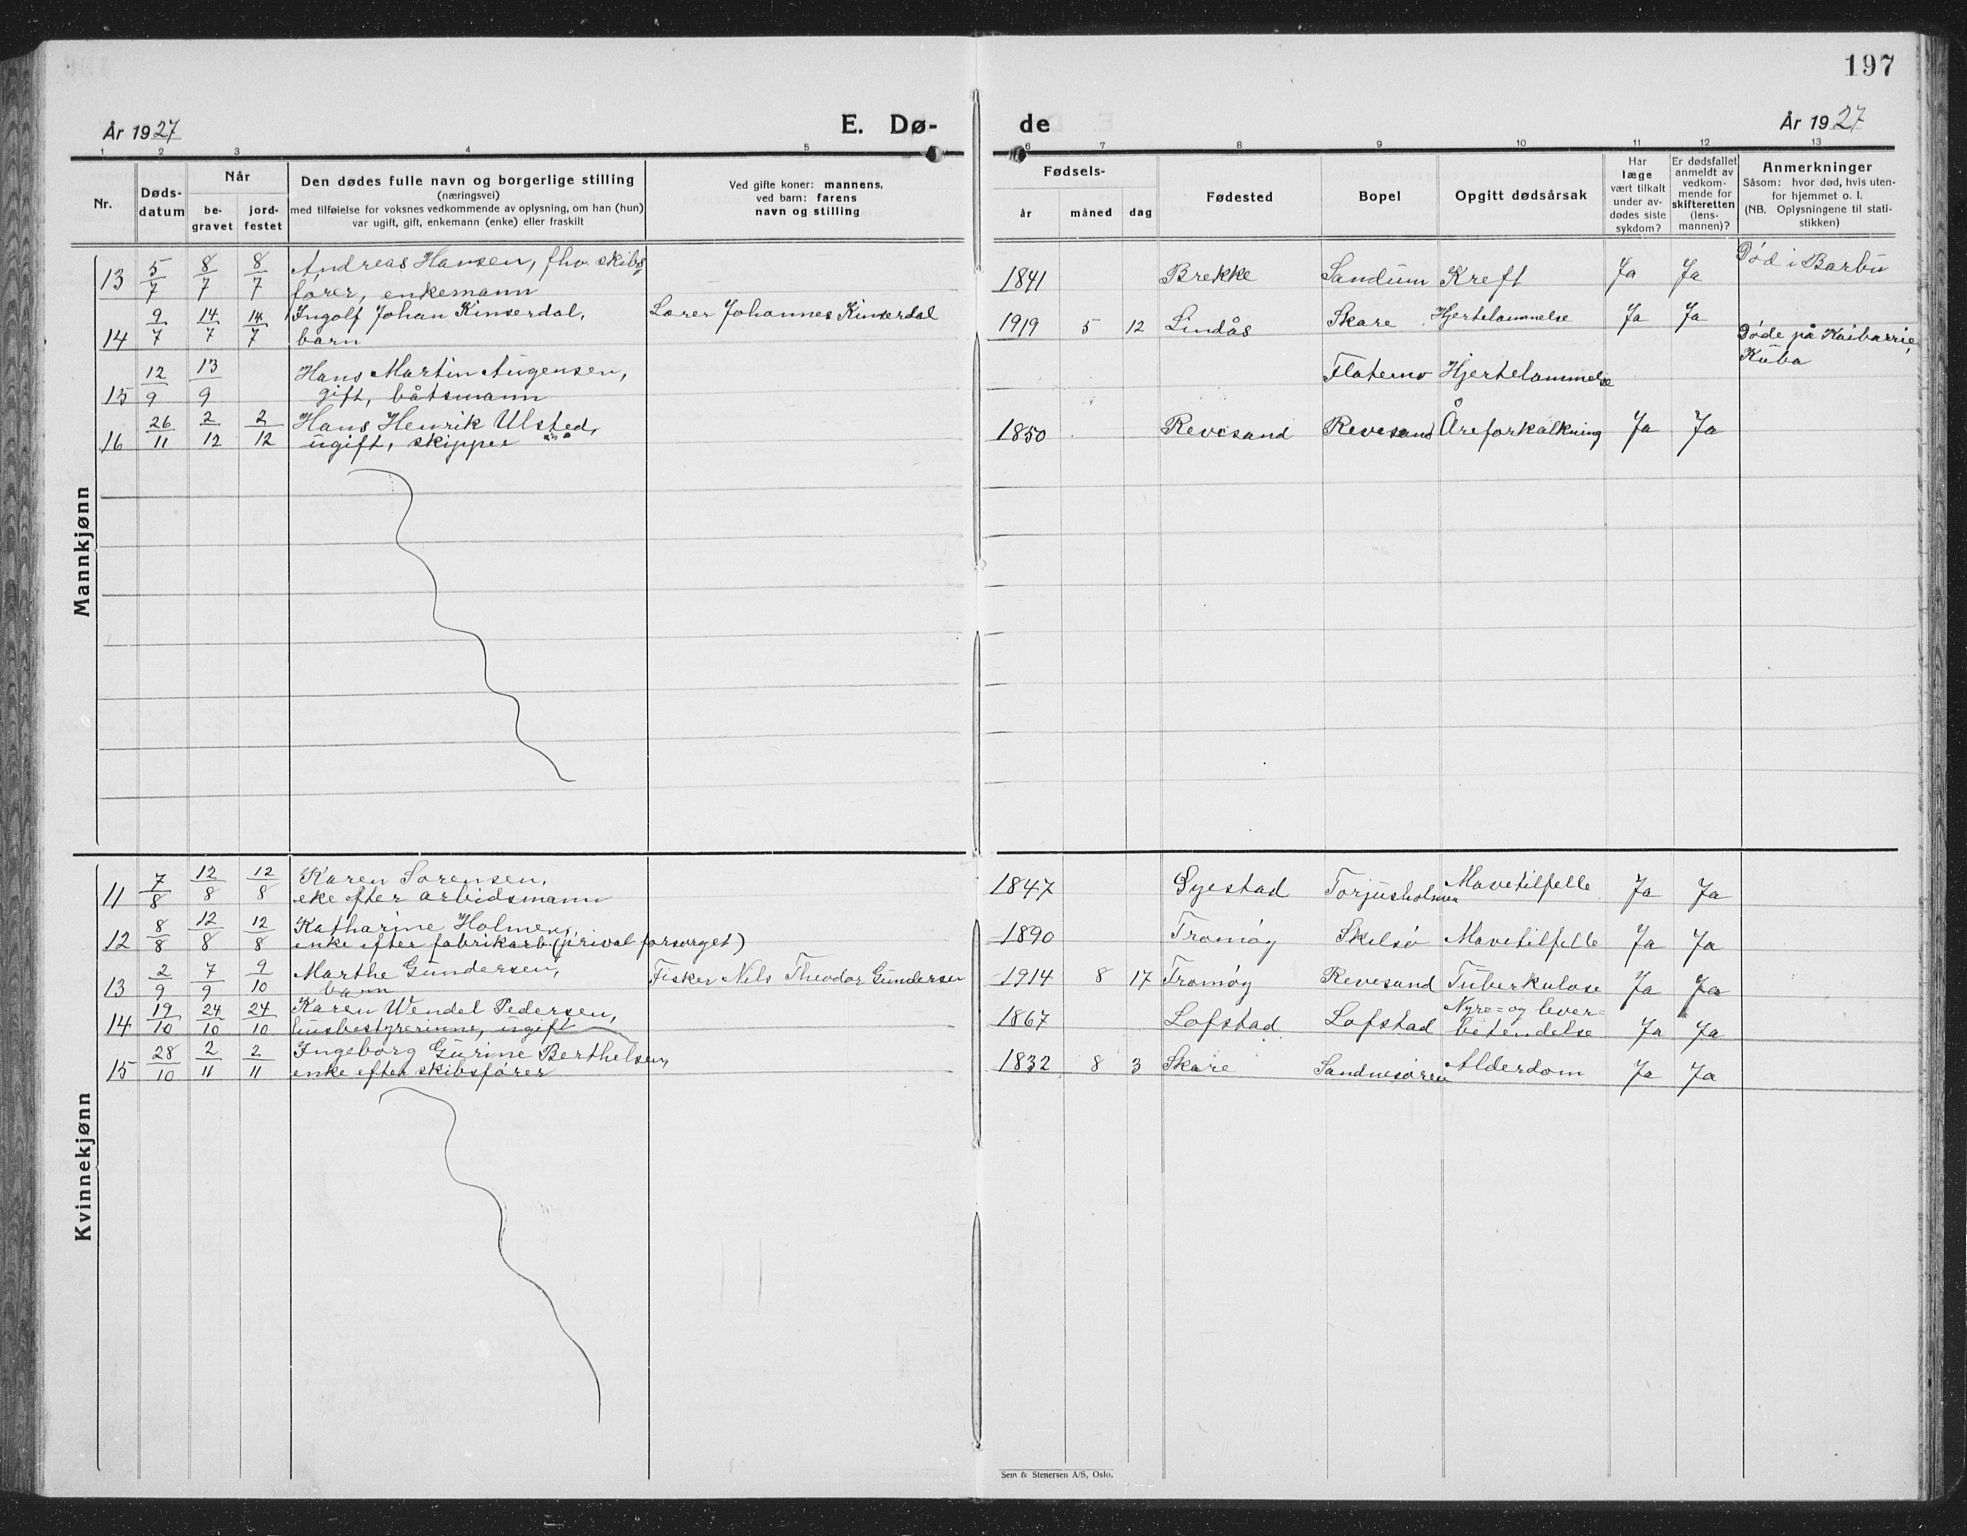 197
År 1927
E. Dø-
de
År 1927
1 2 3 4 5 6 7 8 9 10 11 12 13
Nr.
Døds-
datum
Når
be-
gravet
jord-
festet
Den dødes fulle navn og borgerlige stilling
(næringsvei)
med tilføielse for voksnes vedkommende av oplysning, om han (hun)
var ugift, gift, enkemann (enke) eller fraskilt
Ved gifte koner: mannens,
ved barn: farens
navn og stilling
Fødsels-
år måned dag
Fødested
Bopel
Opgitt dødsårsak
Har
læge
vært tilkalt
under av-
dødes siste
sykdom?
Er dødsfallet
anmeldt av
vedkom-
mende for
skifteretten
(lens-
mannen)?
Anmerkninger
Såsom: hvor død, hvis uten-
for hjemmet o. l.
(NB. Oplysningene til stati-
stikken)
Mannkjønn
13 5/7 8/7 8/7 Andreas Hansen, fhv. skibs
fører, enkemann
1841 Brekke Sandum Kreft Ja Ja Død i Barbu
14 9/7 14/7 14/7 Ingolf Johan Kinserdal,
barn
Lærer Johannes Kinserdal
1919 5 12 Lindås Skare Hjertelammelse Ja Ja
15 12/9 13/9 Hans Martin Augensen,
gift, båtsmann
Hjertelammelse
Døde på Kaibarrie,
Kuba
16 26/11 2/12 2/12 Hans Henrik Ulsted,
ugift, skipper
1850 Revesand Revesand Åreforkalkning Ja Ja
Kvinnekjønn
11 7/8 12/8 12/8 Karen Sørensen,
eke efter arbidsmann
1847 Gyestad Torjusholmen Mavetilfelle Ja Ja
12 8/8 12/8 12/8 Katharine Holmen,
enke efter fabrikarb (privat forsørget)
1890 Tromøy Skilsø Mavetilfelle Ja Ja
13 2/9 7/9 9/10 Marthe Gundersen,
barn
Fisker Nils Theodor Gundersen
1914 8 17 Tromøy Revesand Tuberkulose Ja Ja
14 19/10 24/10 24/10 Karen Wendel Pedersen,
husbestyrerinne, ugift
1867 Lofstad Lofstad Nyre= og lever-
betendelse Ja Ja
15 28/10 2/11 2/11 Ingeborg Gurine Berthelsen,
enke efter skibsfører
1832 8 3 Skare Sandnesøren Alderdom Ja Ja
Sem & Stenersen A/S, Oslo.